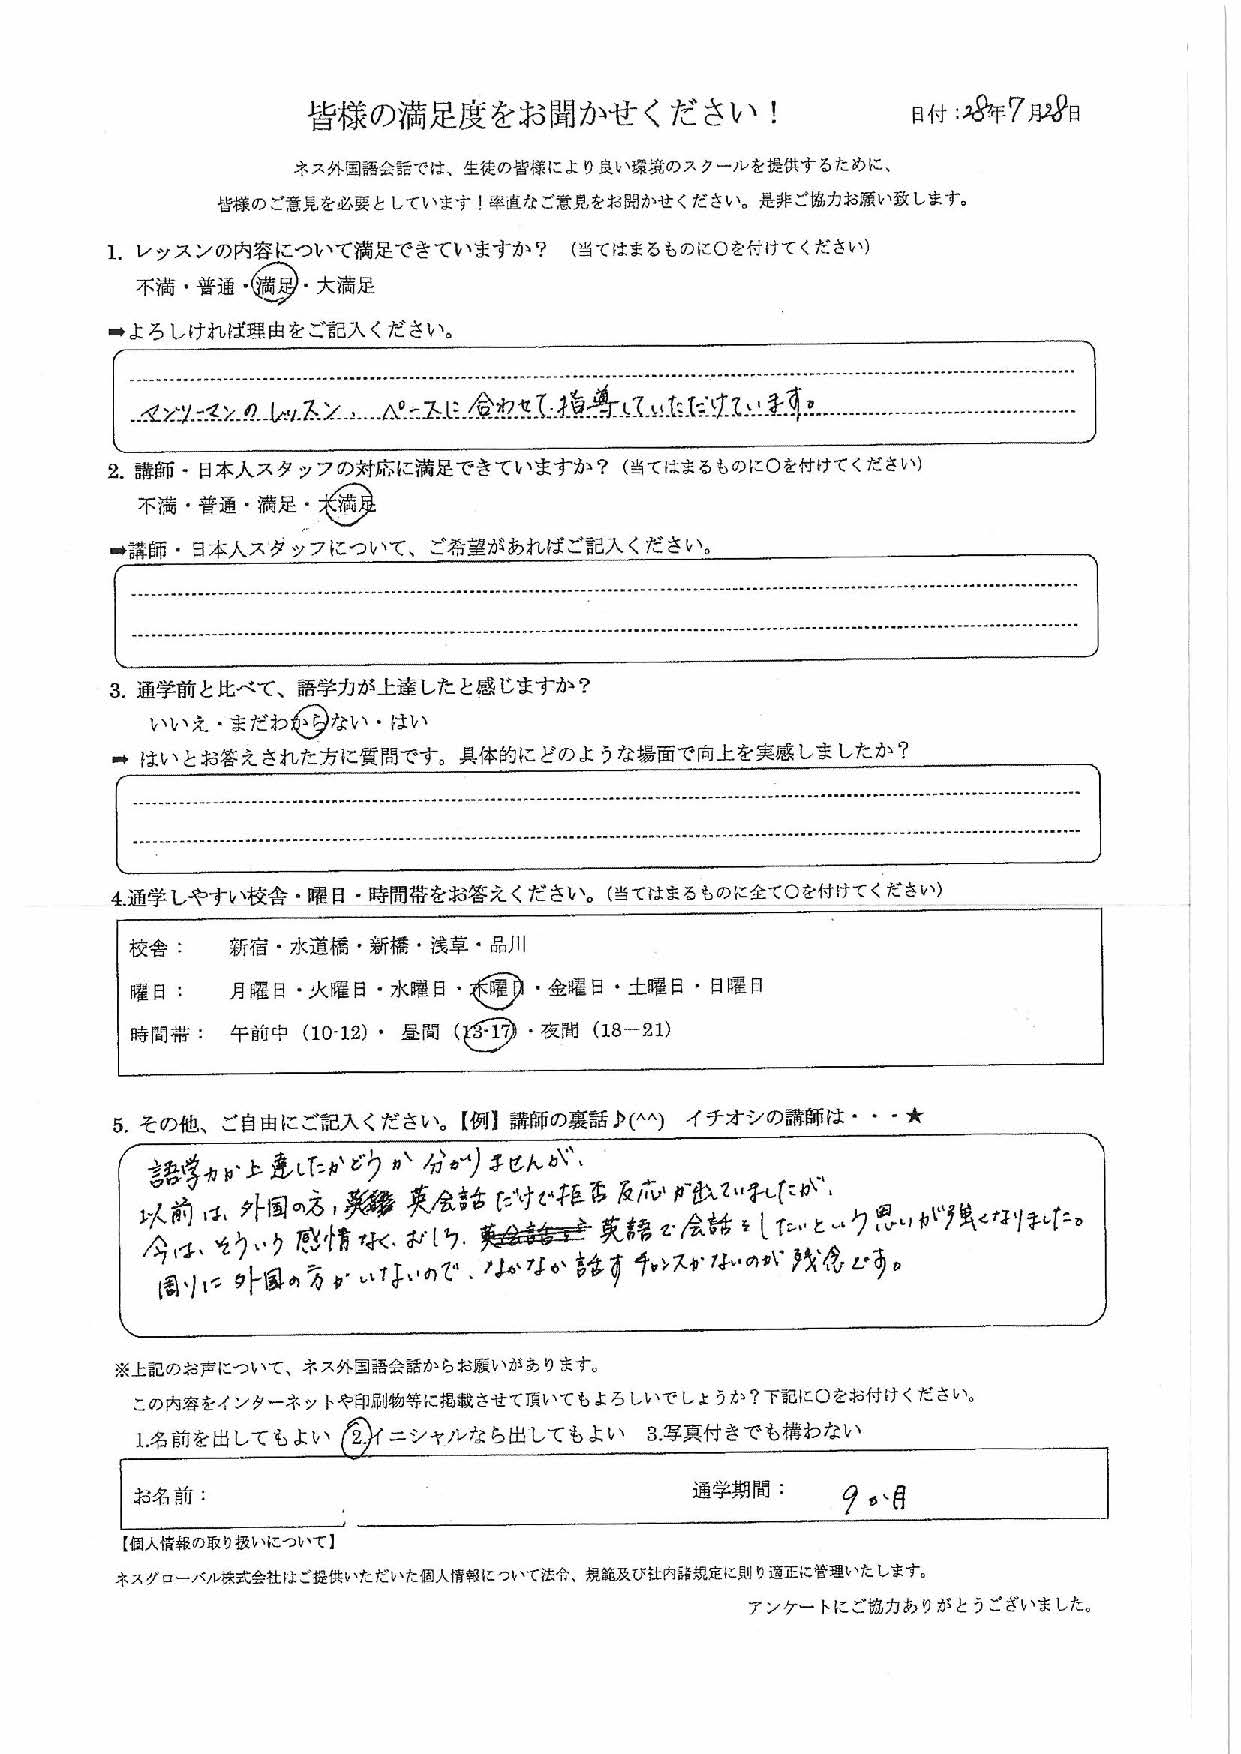 皆様の満足度をお聞かせください！
日付：28年7月28日
ネス外国語会話では、生徒の皆様により良い環境のスクールを提供するために、
皆様のご意見を必要としています！率直なご意見をお聞かせください。是非ご協力お願い致します。
1. レッスンの内容について満足できていますか？ （当てはまるものに〇を付けてください）
不満・普通・満足・大満足
➡よろしければ理由をご記入ください。
マンツーマンのレッスン、ペースに合わせて指導していただけています。
2. 講師・日本人スタッフの対応に満足できていますか？（当てはまるものに〇を付けてください）
不満・普通・満足・大満足
➡講師・日本人スタッフについて、ご希望があればご記入ください。
3. 通学前と比べて、語学力が上達したと感じますか？
いいえ・まだわからない・はい
➡ はいとお答えされた方に質問です。具体的にどのような場面で向上を実感しましたか？
4.通学しやすい校舎・曜日・時間帯をお答えください。（当てはまるものに全て〇を付けてください）
校舎： 新宿・水道橋・新橋・浅草・品川
曜日： 月曜日・火曜日・水曜日・木曜日・金曜日・土曜日・日曜日
時間帯： 午前中（10-12）・ 昼間（13-17）・夜間（18－21）
5. その他、ご自由にご記入ください。【例】講師の裏話♪(^^) イチオシの講師は・・・★
語学力が上達したかどうか分かりませんが、
以前は、外国の方、英会話だけで拒否反応が出ていましたが、
今は、そういう感情なく、むしろ、英語で会話をしたいという思いが強くなりました。
周りに外国の方がいないので、なかなか話すチャンスがないのが残念です。
※上記のお声について、ネス外国語会話からお願いがあります。
この内容をインターネットや印刷物等に掲載させて頂いてもよろしいでしょうか？下記に〇をお付けください。
1.名前を出してもよい 2.イニシャルなら出してもよい 3.写真付きでも構わない
お名前： 通学期間： 9か月
【個人情報の取り扱いについて】
ネスグローバル株式会社はご提供いただいた個人情報について法令、規範及び社内諸規定に則り適正に管理いたします。
アンケートにご協力ありがとうございました。